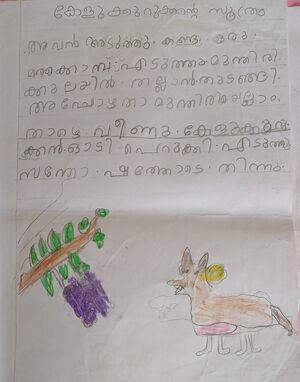 കേളുക്കുറുക്കൻ്റെ സൂത്രം
അവൻ അടുത്തു കണ്ട ഒരു
മരക്കൊമ്പ് എടുത്ത് മുന്തിരി
ക്കുലയിൽ തല്ലാൻ തുടങ്ങി
അപ്പോഴതാ മുന്തിരിയെല്ലാം
താഴെ വീണു കേളുക്കുറു
ക്കൻ ഓടി പെറുക്കി എടുത്തു
സന്തോഷത്തോടെ തിന്നു